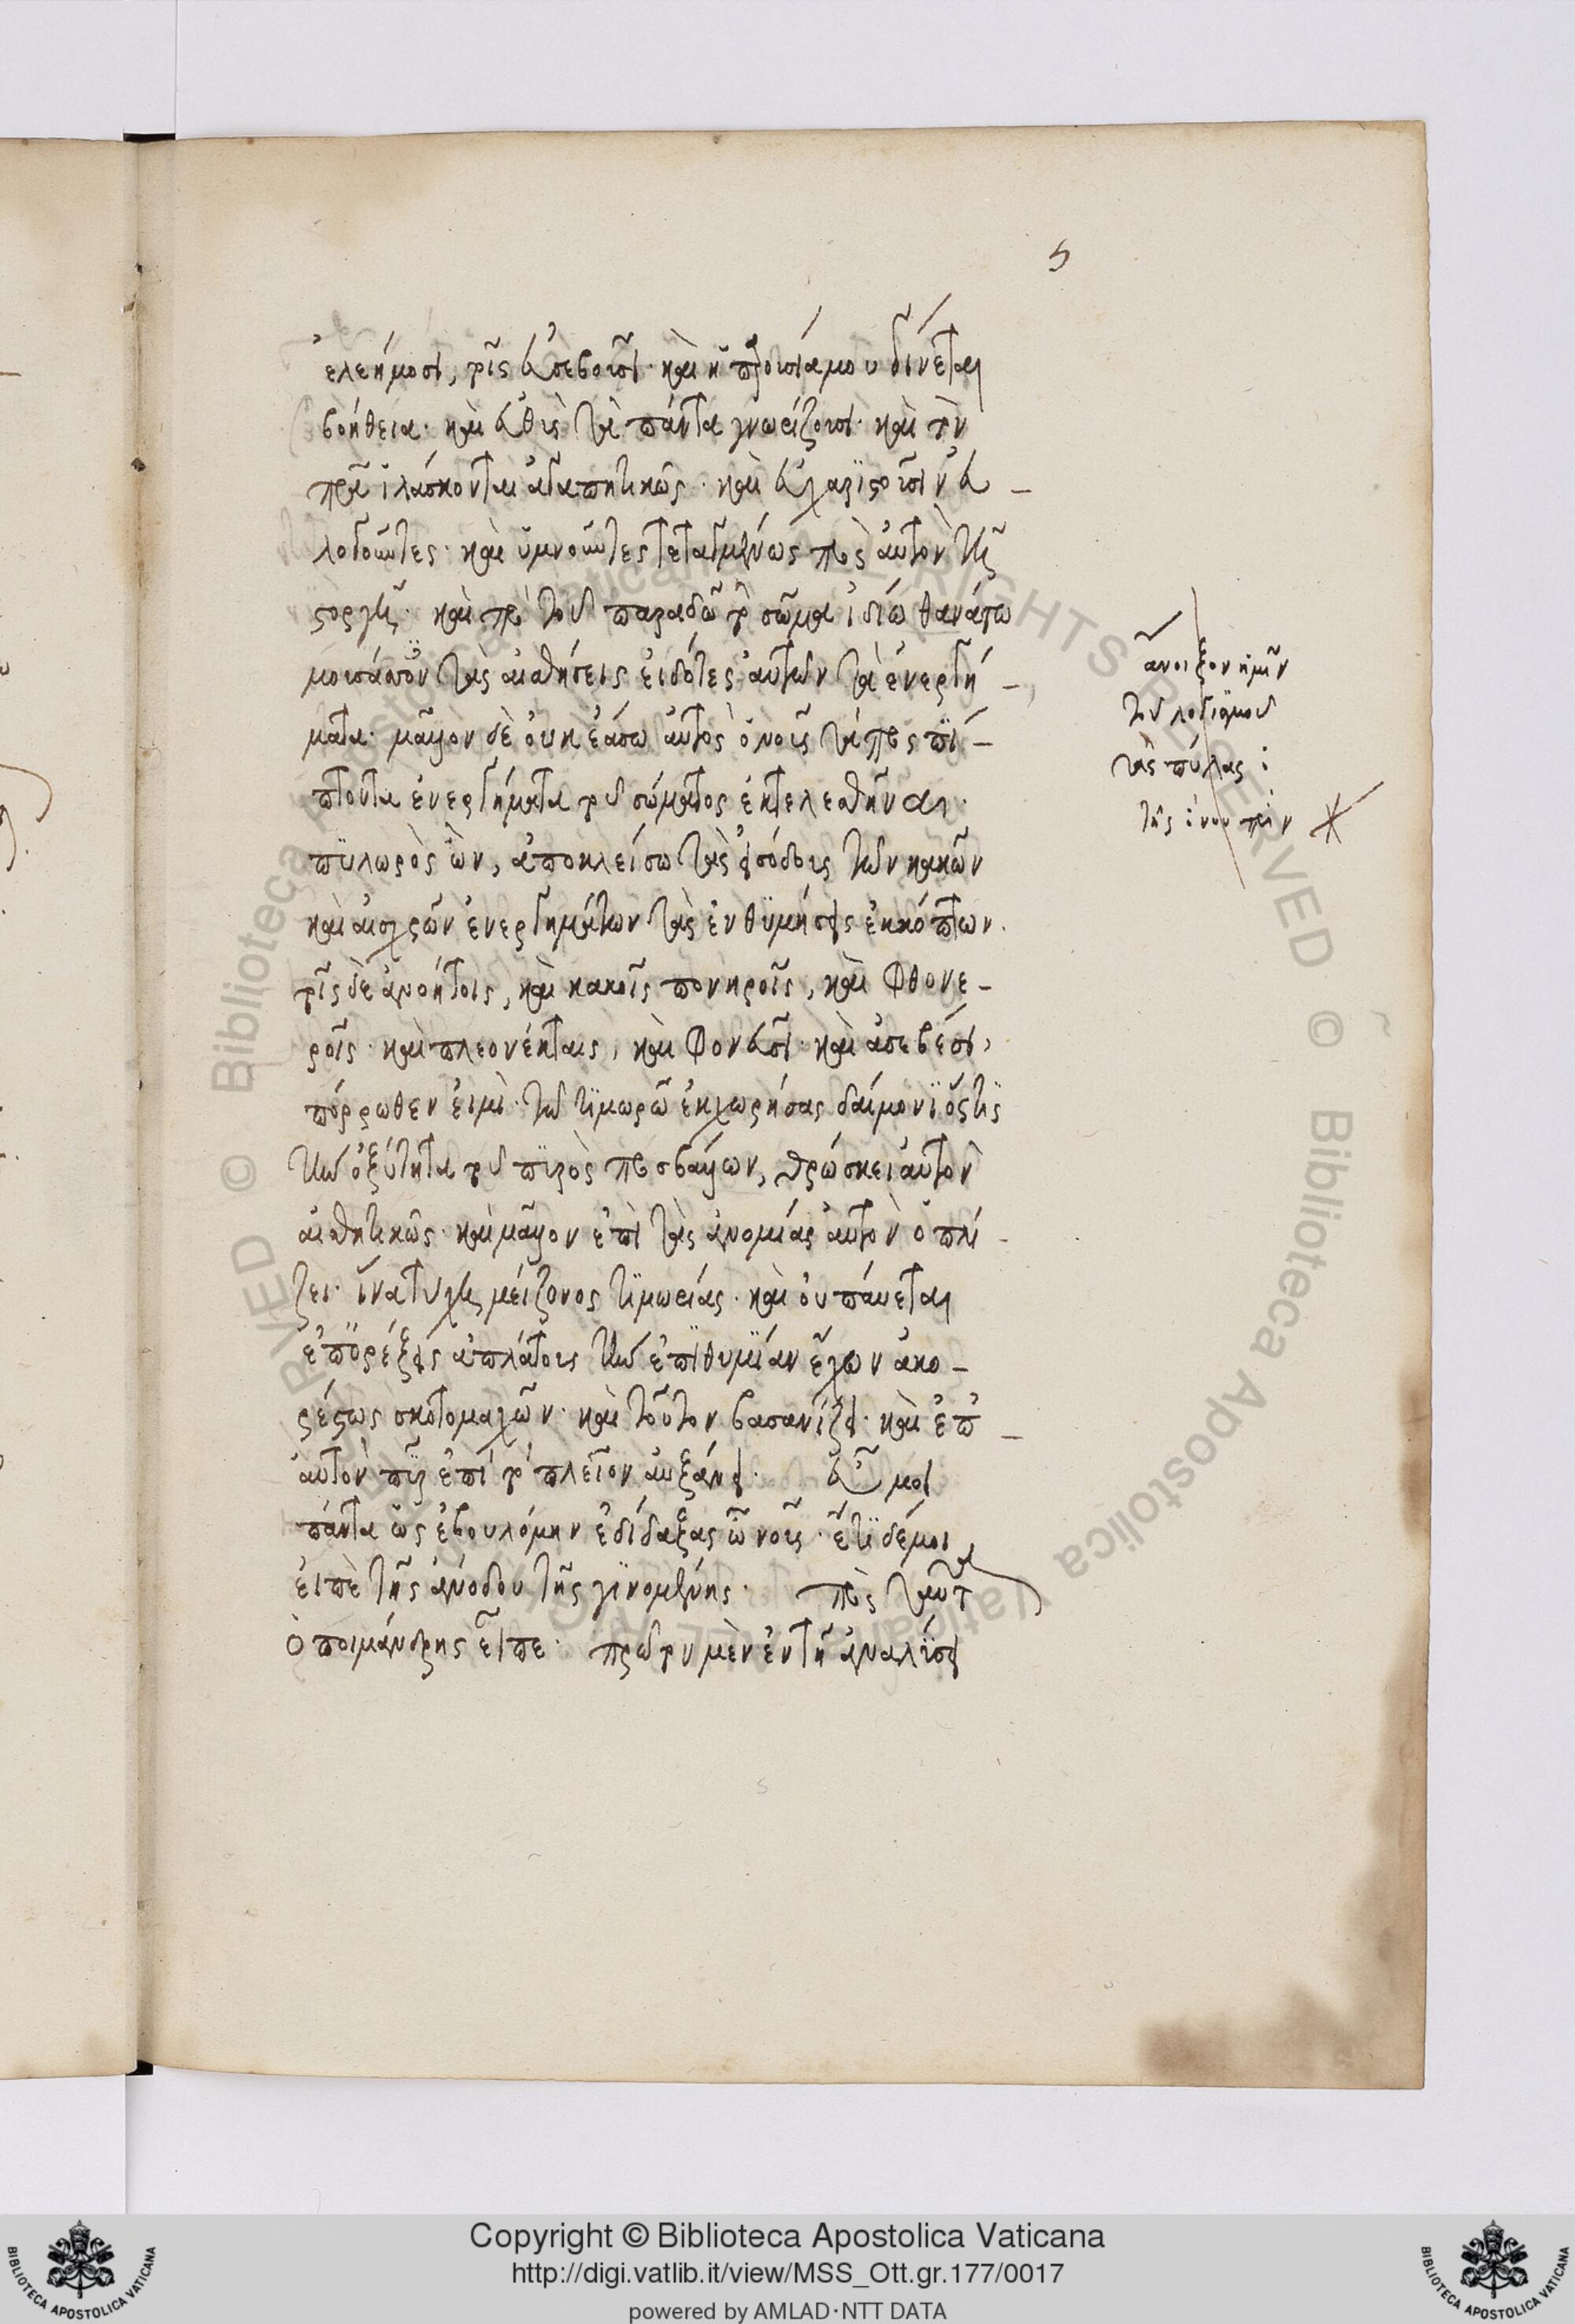 5
ἐλεήμοσι, τοῖς εὐσεβοῦσι· καὶ ἡ παρουσία μου γίνεται
βοήθεια· καὶ εὐθὺς τὰ πάντα γνωρίζουσι· καὶ τὸν
πατέρα ἱλάσκονται ἀγαπητικῶς· καὶ εὐχαριστοῦσιν εὐ-
λογοῦντες· καὶ ὑμνοῦντες τεταγμένως πρὸς αὐτὸν τῇ
στοργῇ· καὶ πρὸ τοῦ παραδοῦναι τὸ σῶμα ἰδίω θανάτω
μυσάττονται τὰς αἰσθήσεις εἰδότες αὐτῶν τὰ ἐνεργή-
ματα· μᾶλλον δὲ οὐκ ἐάσω αὐτὸς ὁ νοῦς τὰ προσπί-
πτοντα ἐνεργήματα τοῦ σώματος ἐκτελεσθῆναι·
πυλωρὸς ὢν, ἀποκλείσω τὰς εἰσόδους τῶν κακῶν
καὶ αἰσχρῶν ἐνεργημάτων τὰς ἐνθυμήσεις ἐκκόπτων.
τοῖς δὲ ἀνοήτοις, καὶ κακοῖς πονηροῖς, καὶ φθονε-
ροῖς· καὶ πλεονέκταις, καὶ φονεῦσι· καὶ ἀσεβέσι,
πόρρωθεν εἰμὶ· τῶ τιμωρῶ ἐκχωρήσας δαίμονι ὅστις
τὴν ὀξύτητα τοῦ πυρὸς προσβάλλων, θρώσκει αὐτὸν
αἰσθητικῶς· καὶ μᾶλλον ἐπὶ τὰς ἀνομίας αὐτὸν ὁπλί-
ζει· ἵνα τύχῃ μείζονος τιμωρίας· καὶ οὐ παύεται
ἐπ' ὀρέξεις ἀπλάτους τὴν ἐπιθυμίαν ἔχων ἀκο-
ρέστως σκοτομαχῶν· καὶ τοῦτον βασανίζει· καὶ ἐπ'
αὐτὸν πῦρ ἐπὶ τὸ πλεῖον αὐξάνει· εὖ μοι
πάντα ὡς ἐβουλόμην ἐδίδαξας ὦ νοῦς· ἔτι δέ μοι
εἰπὲ τῆς ἀνόδου τῆς γινομένης· πρὸς ταῦτα
ὁ ποιμάνδρης εἶπε· πρῶτον μὲν ἐν τῇ ἀναλύσει
ἄνοιξον ἡμῖν
τοῦ λογισμοῦ
τὰς πύλας :
Copyright © Biblioteca Apostolica Vaticana
http://digi.vatlib.it/view/MSS_Ott.gr.177/0017
powered by AMLAD·NTT DATA